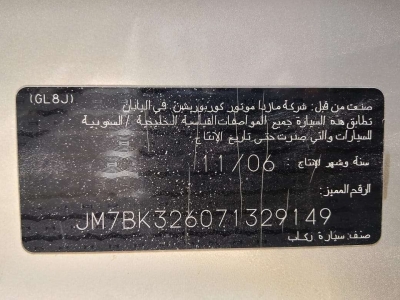 (GL8J)
صنعت من قبل: شركة مازدا موتور كوربوريشن. في اليابان
تطابق هذه السيارة جميع المواصفات القياسية الخليجية / السعودية
للسيارات والتي صدرت حتى تاريخ الإنتاج
سنة وشهر الإنتاج : 11/06
الرقم المميز:
JM7BK326071329149
صنف: سيارة ركاب